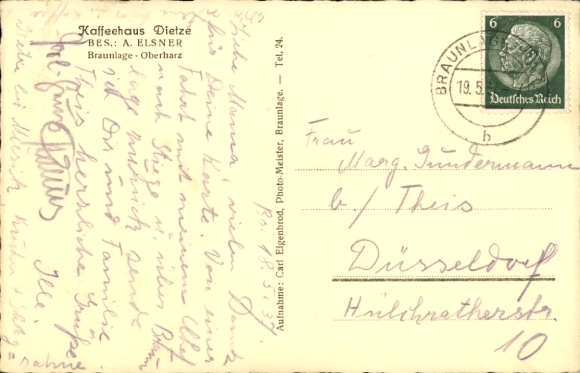 Kaffeehaus Dietze
BES.: A. ELSNER
Braunlage - Oberharz
Aufnahme: Carl Eigenbrod, Photo-Meister, Braunlage. — Tel. 24.
6 6
Deutsches Reich
BRAUNLAGE
19.5.
b
Br. 18.5.37
Liebe Mama! vielen Dank
für Deine Karte. Von einer
Fahrt mit meinem Chef
nach Stiege u. über Braun
lage zurück sende
ich Dir und Familie
Theis herrliche Grüße
Ille
Frau
Marg. Gundermann
b/ Theis
Düsseldorf
Hülchratherstr.
10